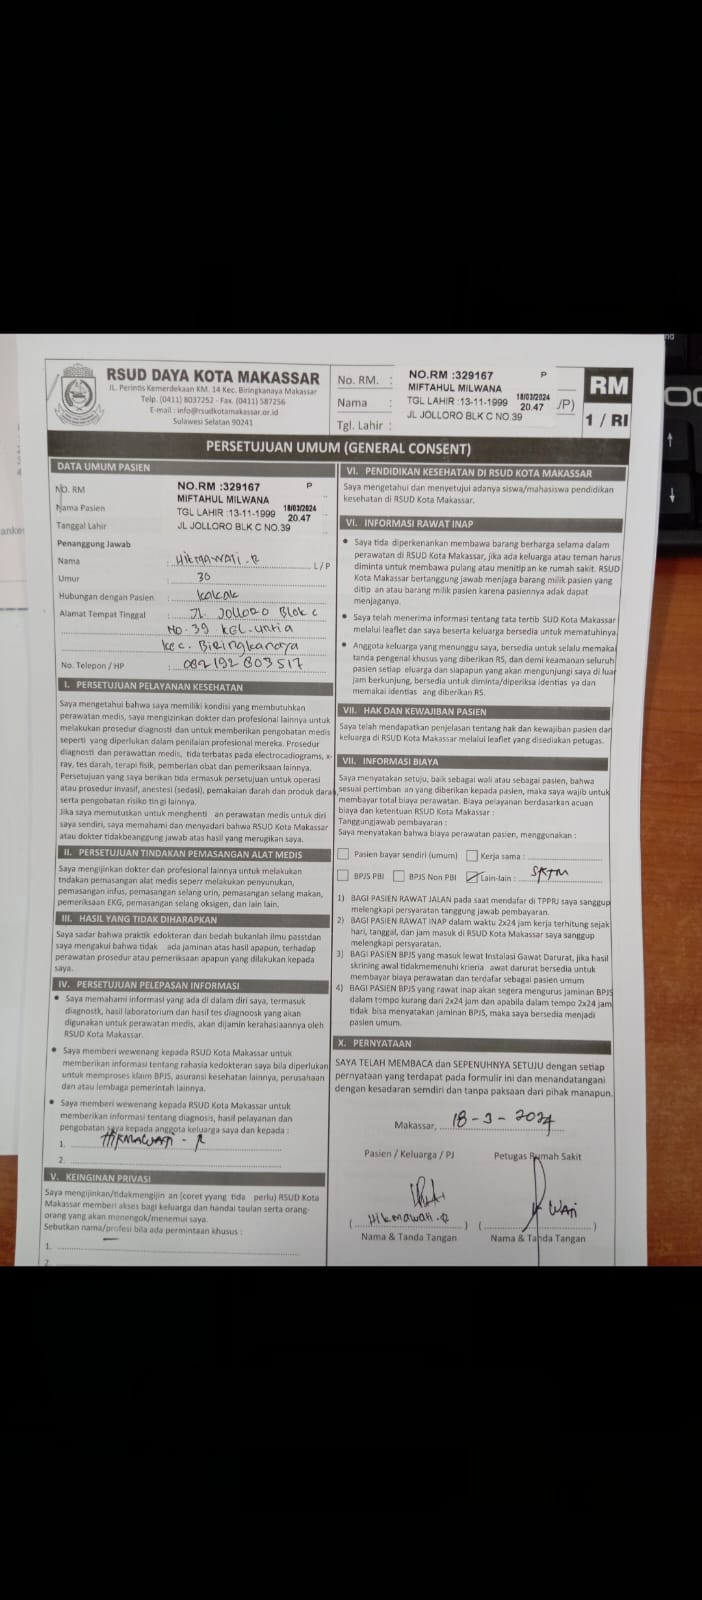 RSUD DAYA KOTA MAKASSAR
JL. Perintis Kemerdekaan KM. 14 Kec. Biringkanaya Makassar
Telp. (0411) 8037252 - Fax. (0411) 587256
E-mail : info@rsudkotamakassar.or.id
Sulawesi Selatan 90241
No. RM. :
Nama :
Tgl. Lahir :
NO.RM :329167 P
MIFTAHUL MILWANA
TGL LAHIR :13-11-1999 18/03/2024 20.47
JL JOLLORO BLK C NO.39
/P)
RM
1 / RI
PERSETUJUAN UMUM (GENERAL CONSENT)
DATA UMUM PASIEN
NO. RM
Nama Pasien
Tanggal Lahir
NO.RM :329167 P
MIFTAHUL MILWANA
TGL LAHIR :13-11-1999 18/03/2024 20.47
JL JOLLORO BLK C NO.39
Penanggung Jawab
Nama : HIKMAWATI-R L/P
Umur : 30
Hubungan dengan Pasien : kakak
Alamat Tempat Tinggal : JL. JOLLORO Blok C
NO.39 KEL.Untia
kec. Biringkanaya
No. Telepon / HP : 082192803517
I. PERSETUJUAN PELAYANAN KESEHATAN
Saya mengetahui bahwa saya memiliki kondisi yang membutuhkan
perawatan medis, saya mengizinkan dokter dan profesional lainnya untuk
melakukan prosedur diagnosti dan untuk memberikan pengobatan medis
seperti yang diperlukan dalam penilaian profesional mereka. Prosedur
diagnosti dan perawattan medis, tida terbatas pada electrocadiograms, x-
ray, tes darah, terapi fisik, pemberian obat dan pemeriksaan lainnya.
Persetujuan yang saya berikan tida ermasuk persetujuan untuk operasi
atau prosedur invasif, anestesi (sedasi), pemakaian darah dan produk darah,
serta pengobatan risiko tin gi lainnya.
Jika saya memutuskan untuk menghenti an perawatan medis untuk diri
saya sendiri, saya memahami dan menyadari bahwa RSUD Kota Makassar
atau dokter tidakbeanggung jawab atas hasil yang merugikan saya.
II. PERSETUJUAN TINDAKAN PEMASANGAN ALAT MEDIS
Saya mengijinkan dokter dan profesional lainnya untuk melakukan
tndakan pemasangan alat medis seperr melakukan penyunukan,
pemasangan infus, pemasangan selang urin, pemasangan selang makan,
pemeriksaan EKG, pemasangan selang oksigen, dan lain lain.
III. HASIL YANG TIDAK DIHARAPKAN
Saya sadar bahwa praktik edokteran dan bedah bukanlah ilmu passtdan
saya mengakui bahwa tidak ada jaminan atas hasil apapun, terhadap
perawatan prosedur atau pemeriksaan apapun yang dilakukan kepada
saya.
IV. PERSETUJUAN PELEPASAN INFORMASI
• Saya memahami informasi yang ada di dalam diri saya, termasuk
diagnostk, hasil laboratorium dan hasil tes diagnoosk yang akan
digunakan untuk perawatan medis, akan dijamin kerahasiaannya oleh
RSUD Kota Makassar.
• Saya memberi wewenang kepada RSUD Kota Makassar untuk
memberikan informasi tentang rahasia kedokteran saya bila diperlukan
untuk memproses klaim BPJS, asuransi kesehatan lainnya, perusahaan
dan atau lembaga pemerintah lainnya.
• Saya memberi wewenang kepada RSUD Kota Makassar untuk
memberikan informasi tentang diagnosis, hasil pelayanan dan
pengobatan saya kepada anggota keluarga saya dan kepada :
1. HIKMAWATI - R
2.
V. KEINGINAN PRIVASI
Saya mengijinkan/tidakmengijin an (coret yyang tida perlu) RSUD Kota
Makassar memberi akses bagi keluarga dan handai taulan serta orang-
orang yang akan menengok/menemui saya.
Sebutkan nama/profesi bila ada permintaan khusus :
1.
2.
VI. PENDIDIKAN KESEHATAN DI RSUD KOTA MAKASSAR
Saya mengetahui dan menyetujui adanya siswa/mahasiswa pendidikan
kesehatan di RSUD Kota Makassar.
VI. INFORMASI RAWAT INAP
• Saya tida diperkenankan membawa barang berharga selama dalam
perawatan di RSUD Kota Makassar, jika ada keluarga atau teman harus
diminta untuk membawa pulang atau menitip an ke rumah sakit. RSUD
Kota Makassar bertanggung jawab menjaga barang milik pasien yang
ditip an atau barang milik pasien karena pasiennya adak dapat
menjaganya.
• Saya telah menerima informasi tentang tata tertib SUD Kota Makassar
melalui leaflet dan saya beserta keluarga bersedia untuk mematuhinya.
• Anggota keluarga yang menunggu saya, bersedia untuk selalu memakai
tanda pengenal khusus yang diberikan RS, dan demi keamanan seluruh
pasien setiap eluarga dan siapapun yang akan mengunjungi saya di luar
jam berkunjung, bersedia untuk diminta/diperiksa identias ya dan
memakai identias ang diberikan RS.
VII. HAK DAN KEWAJIBAN PASIEN
Saya telah mendapatkan penjelasan tentang hak dan kewajiban pasien dan
keluarga di RSUD Kota Makassar melalui leaflet yang disediakan petugas.
VII. INFORMASI BIAYA
Saya menyatakan setuju, baik sebagai wali atau sebagai pasien, bahwa
sesuai pertimban an yang diberikan kepada pasien, maka saya wajib untuk
membayar total biaya perawatan. Biaya pelayanan berdasarkan acuan
biaya dan ketentuan RSUD Kota Makassar :
Tanggungjawab pembayaran :
Saya menyatakan bahwa biaya perawatan pasien, menggunakan :
Pasien bayar sendiri (umum) Kerja sama :
BPJS PBI BPJS Non PBI Lain-lain : SKTM
1) BAGI PASIEN RAWAT JALAN pada saat mendafar di TPPRJ saya sanggup
melengkapi persyaratan tanggung jawab pembayaran.
2) BAGI PASIEN RAWAT INAP dalam waktu 2x24 jam kerja terhitung sejak
hari, tanggal, dan jam masuk di RSUD Kota Makassar saya sanggup
melengkapi persyaratan.
3) BAGI PASIEN BPJS yang masuk lewat Instalasi Gawat Darurat, jika hasil
skrining awal tidakmemenuhi krieria awat darurat bersedia untuk
membayar biaya perawatan dan terdafar sebagai pasien umum
4) BAGI PASIEN BPJS yang rawat inap akan segera mengurus jaminan BPJS
dalam tempo kurang dari 2x24 jam dan apabila dalam tempo 2x24 jam
tidak bisa menyatakan jaminan BPJS, maka saya bersedia menjadi
pasien umum.
X. PERNYATAAN
SAYA TELAH MEMBACA dan SEPENUHNYA SETUJU dengan setiap
pernyataan yang terdapat pada formulir ini dan menandatangani
dengan kesadaran semdiri dan tanpa paksaan dari pihak manapun.
Makassar, 18-3-2024
Pasien / Keluarga / PJ Petugas Rumah Sakit
( Hikmawati-R ) ( WATI )
Nama & Tanda Tangan Nama & Tanda Tangan